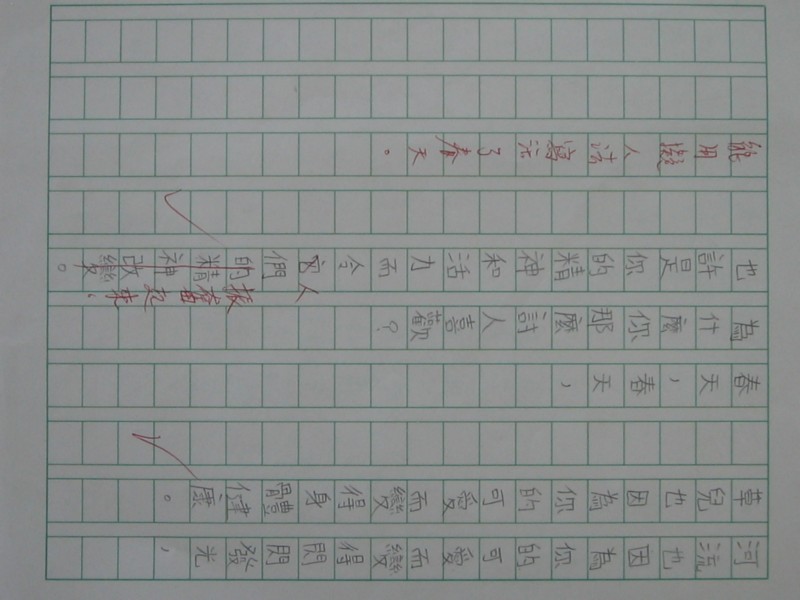 河流也因為你的可愛而變得閃閃發光，
草兒也因為你的可愛而變得身體健康。
春天，春天，
為什麼你那麼討人喜歡？
人振奮起來
也許是你的精神和活力而令它們的精神改變。
能用擬人法寫活了春天。